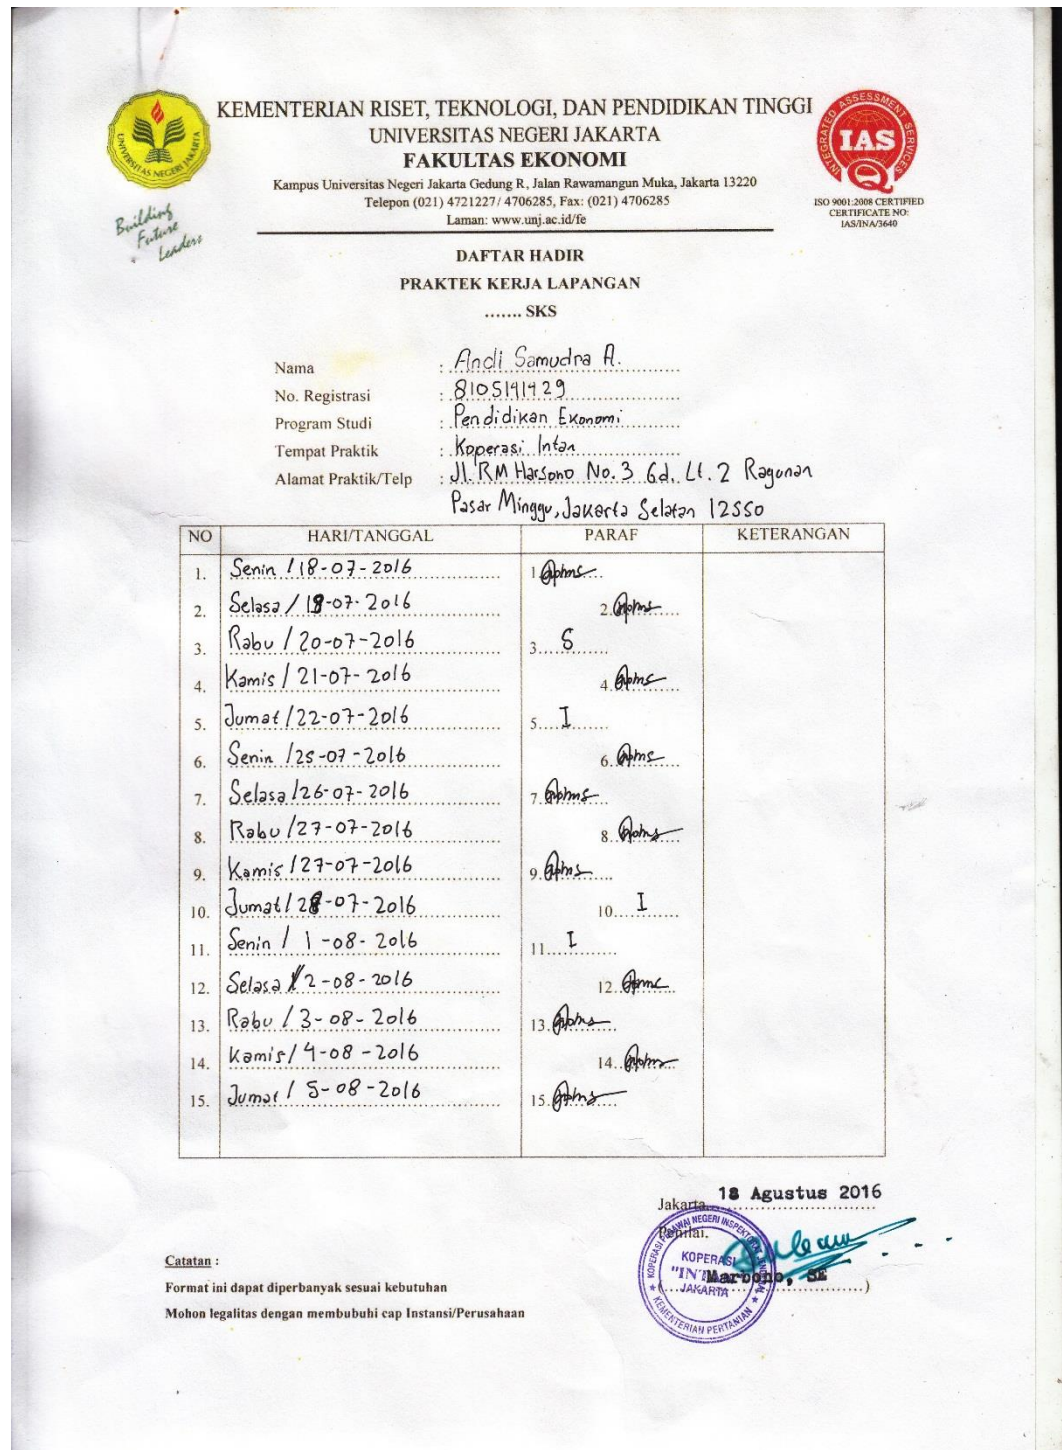 KEMENTERIAN RISET, TEKNOLOGI, DAN PENDIDIKAN TINGGI
UNIVERSITAS NEGERI JAKARTA
FAKULTAS EKONOMI
Kampus Universitas Negeri Jakarta Gedung R, Jalan Rawamangun Muka, Jakarta 13220
Telepon (021) 4721227/ 4706285, Fax: (021) 4706285
Laman: www.unj.ac.id/fe
UNIVERSITAS NEGERI JAKARTA
Building
Future
Leaders
INTEGRATED ASSESSMENT SERVICES
IAS
ISO 9001:2008 CERTIFIED
CERTIFICATE NO:
IAS/INA/3640
DAFTAR HADIR
PRAKTEK KERJA LAPANGAN
....... SKS
Nama : Andi Samudra A.
No. Registrasi : 8105141429
Program Studi : Pendidikan Ekonomi
Tempat Praktik : Koperasi Intan
Alamat Praktik/Telp : Jl. RM Harsono No. 3 Gd. Lt. 2 Ragunan
Pasar Minggu, Jakarta Selatan 12550
NO HARI/TANGGAL PARAF KETERANGAN
1. Senin / 18-07-2016 1.
2. Selasa / 19-07-2016 2.
3. Rabu / 20-07-2016 3. S
4. Kamis / 21-07-2016 4.
5. Jumat / 22-07-2016 5. I
6. Senin / 25-07-2016 6.
7. Selasa / 26-07-2016 7.
8. Rabu / 27-07-2016 8.
9. Kamis / 27-07-2016 9.
10. Jumat / 28-07-2016 10. I
11. Senin / 1-08-2016 11. I
12. Selasa / 2-08-2016 12.
13. Rabu / 3-08-2016 13.
14. Kamis / 4-08-2016 14.
15. Jumat / 5-08-2016 15.
Jakarta, 18 Agustus 2016
Penilai,
(Marbono, SE)
KOPERASI PEGAWAI NEGERI INSPEKTORAT JENDERAL
KOPERASI
"INTAN"
JAKARTA
KEMENTERIAN PERTANIAN
Catatan :
Format ini dapat diperbanyak sesuai kebutuhan
Mohon legalitas dengan membubuhi cap Instansi/Perusahaan